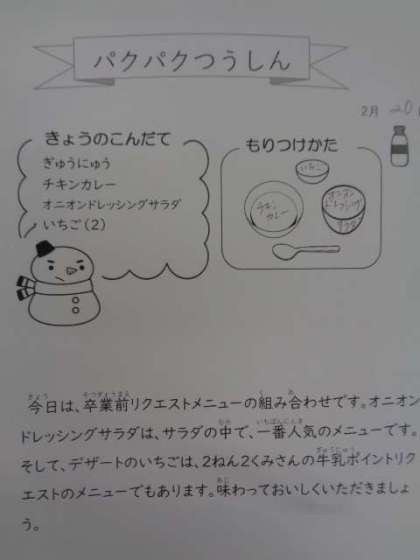 パクパクつうしん
2月 20
きょうのこんだて
ぎゅうにゅう
チキンカレー
オニオンドレッシングサラダ
いちご(2)
もりつけかた
いちご
チキン
カレー
オニオン
ドレッシング
サラダ
今日は、卒業前リクエストメニューの組み合わせです。オニオン
ドレッシングサラダは、サラダの中で、一番人気のメニューです。
そして、デザートのいちごは、2ねん2くみさんの牛乳ポイントリク
エストのメニューでもあります。味わっておいしくいただきましょ
う。